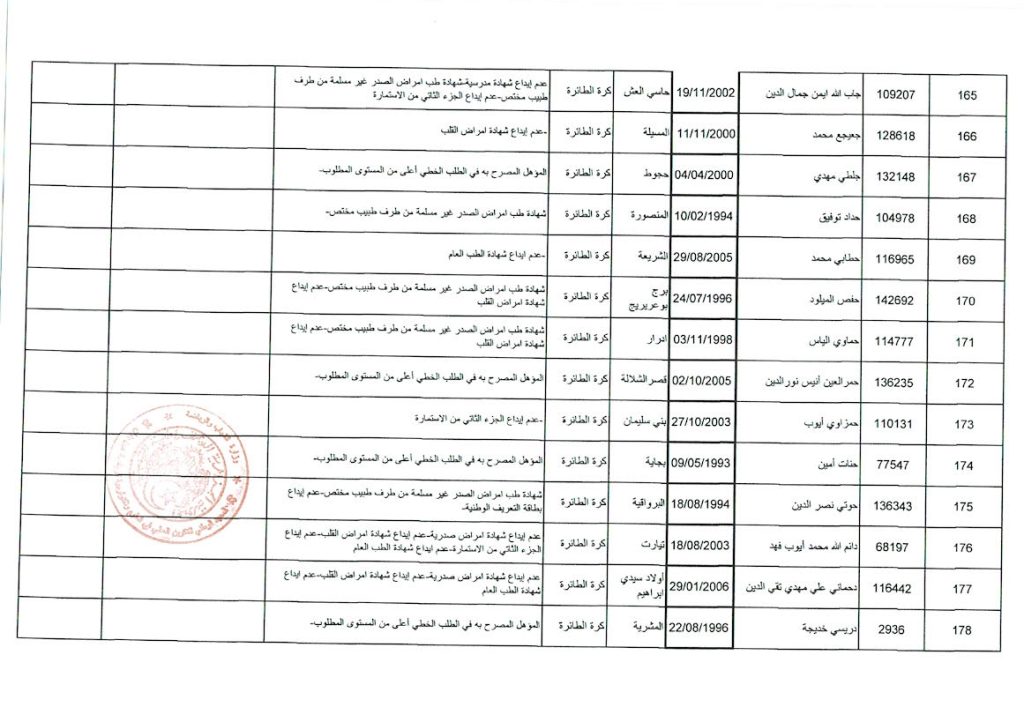 165 109207 جاب الله ايمن جمال الدين 19/11/2002 حاسي العش كرة الطائرة عدم إيداع شهادة مدرسية-شهادة طب امراض الصدر غير مسلمة من طرف
طبيب مختص-عدم إيداع الجزء الثاني من الاستمارة
166 128618 جعيجع محمد 11/11/2000 المسيلة كرة الطائرة -عدم إيداع شهادة امراض القلب
167 132148 جلطي مهدي 04/04/2000 حجوط كرة الطائرة المؤهل المصرح به في الطلب الخطي أعلى من المستوى المطلوب-
168 104978 حداد توفيق 10/02/1994 المنصورة كرة الطائرة شهادة طب امراض الصدر غير مسلمة من طرف طبيب مختص-
169 116965 حطابي محمد 29/08/2005 الشريعة كرة الطائرة -عدم ايداع شهادة الطب العام
170 142692 حفص الميلود 24/07/1996 برج بوعريريج كرة الطائرة شهادة طب امراض الصدر غير مسلمة من طرف طبيب مختص-عدم إيداع
شهادة امراض القلب
171 114777 حماوي الياس 03/11/1998 ادرار كرة الطائرة شهادة طب امراض الصدر غير مسلمة من طرف طبيب مختص-عدم إيداع
شهادة امراض القلب
172 136235 حمرالعين أنيس نورالدين 02/10/2005 قصر الشلالة كرة الطائرة المؤهل المصرح به في الطلب الخطي أعلى من المستوى المطلوب-
173 110131 حمزاوي أيوب 27/10/2003 بني سليمان كرة الطائرة -عدم إيداع الجزء الثاني من الاستمارة
174 77547 حنات أمين 09/05/1993 بجاية كرة الطائرة المؤهل المصرح به في الطلب الخطي أعلى من المستوى المطلوب-
175 136343 حوتي نصر الدين 18/08/1994 البرواقية كرة الطائرة شهادة طب امراض الصدر غير مسلمة من طرف طبيب مختص-عدم إيداع
بطاقة التعريف الوطنية-
176 68197 دائم الله محمد أيوب فهد 18/08/2003 تيارت كرة الطائرة عدم إيداع شهادة امراض صدرية-عدم إيداع شهادة امراض القلب-عدم إيداع
الجزء الثاني من الاستمارة-عدم ايداع شهادة الطب العام
177 116442 دحماني علي مهدي تقي الدين 29/01/2006 أولاد سيدي ابراهيم كرة الطائرة عدم إيداع شهادة امراض صدرية-عدم إيداع شهادة امراض القلب-عدم ايداع
شهادة الطب العام
178 2936 دريسي خديجة 22/08/1996 المشرية كرة الطائرة المؤهل المصرح به في الطلب الخطي أعلى من المستوى المطلوب-